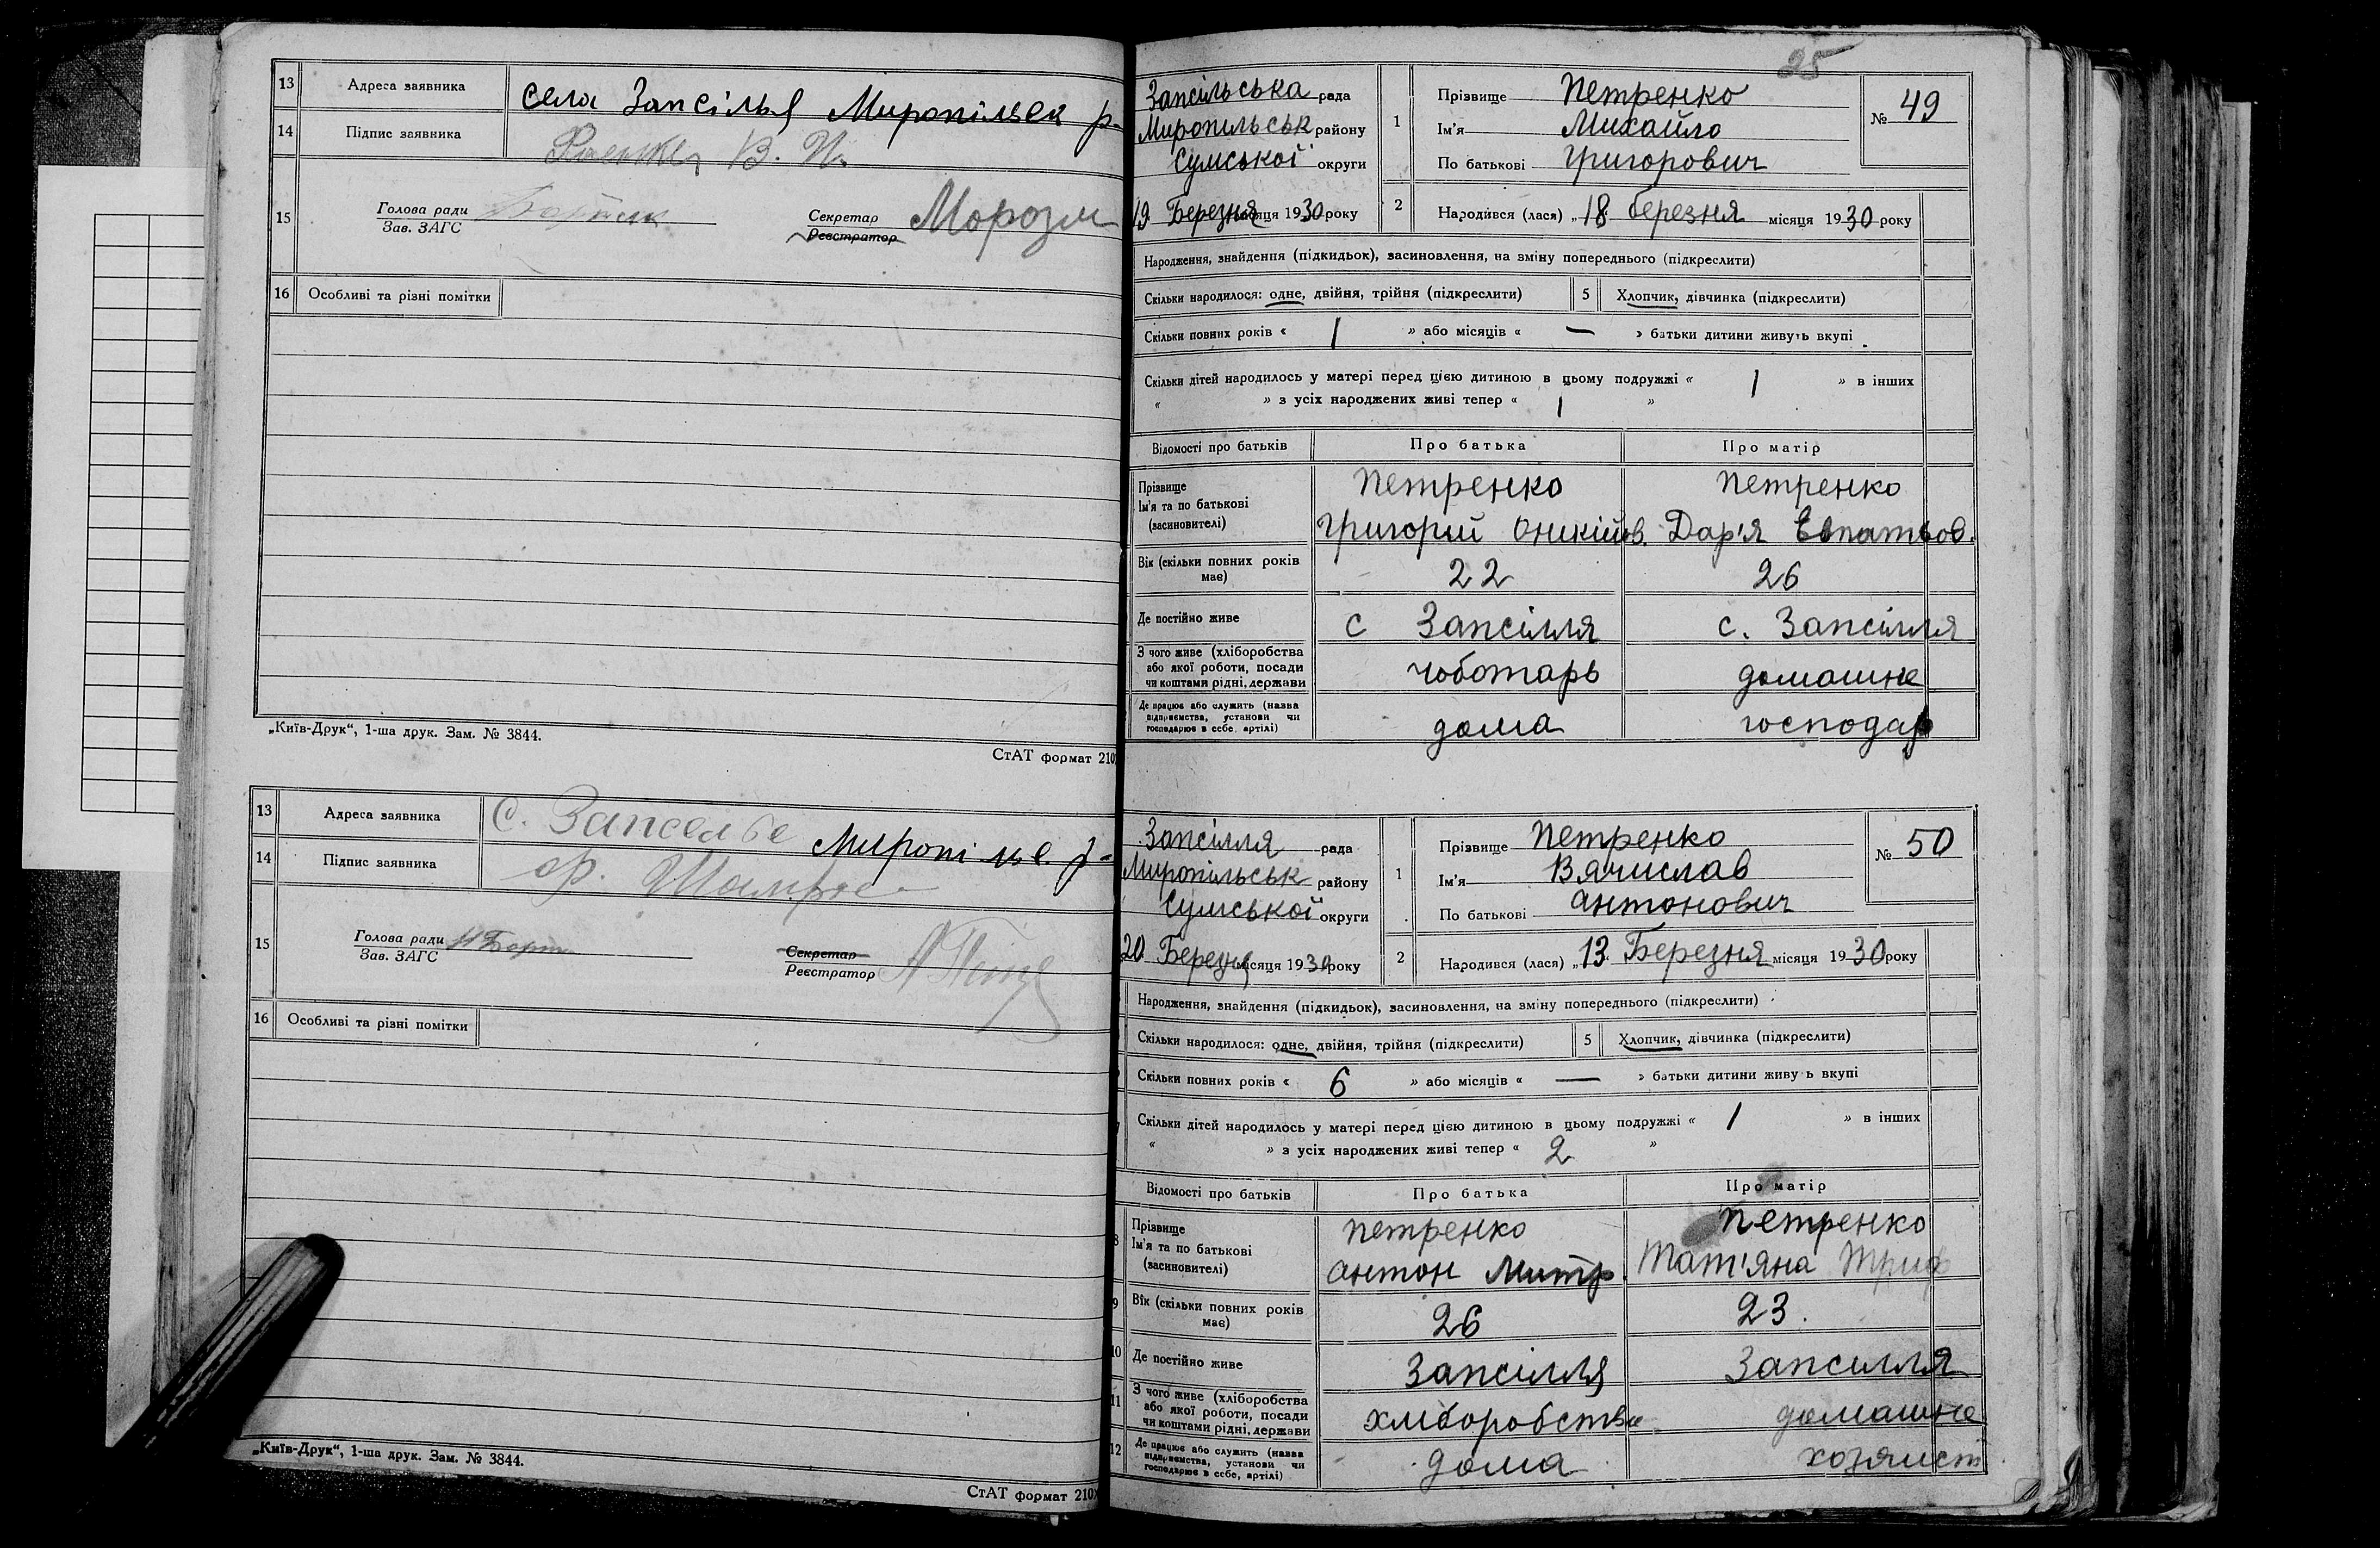 13 Адреса заявника села Запсілья Миропільск р.
14 Підпис заявника В. И.
15 Голова ради
Зав. ЗАГС
Секретар
Реєстратор
16 Особливі та різні помітки
„Київ-Друк“, 1-ша друк. Зам. № 3844.
СтАТ формат 210
13 Адреса заявника С. Запселье Миропільс. р-
14 Підпис заявника
15 Голова ради
Зав. ЗАГС
Секретар
Реєстратор
16 Особливі та різні помітки
„Київ-Друк“, 1-ша друк. Зам. № 3844.
СтАТ формат 210
25
Запсільська рада
Миропільськ району
Сумської округи
19 Березня місяця 1930 року
1 Прізвище Петренко
Ім'я Михайло
По батькові Григорович
№ 49
2 Народився (лася) „18 березня місяця 1930 року
Народження, знайдення (підкидьок), васиновлення, на зміну попереднього (підкреслити)
Скільки народилося: одне, двійня, трійня (підкреслити) 5 Хлопчик, дівчинка (підкреслити)
Скільки повних років « 1 » або місяців « — » батьки дитини живуть вкупі
Скільки дітей народилось у матері перед цією дитиною в цьому подружжі « 1 » в інших
« » з усіх народжених живі тепер « 1 »
Відомості про батьків Про батька Про матір
Прізвище
Ім'я та по батькові
(засиновителі)
Петренко Петренко
Григорий Оникійов. Дар'я Евпатьов.
Вік (скільки повних років має) 22 26
Де постійно живе с Запсілля с. Запсілля
З чого живе (хліборобства
або якої роботи, посади
чи коштами рідні, держави
чоботарь домашне
Де працює або служить (назва
підприємства, установи чи
господарює в себе, артілі)
дома господар
Запсілля рада
Миропільськ району
Сумської округи
20 Березня місяця 1930 року
1 Прізвище Петренко
Ім'я Вячислав
По батькові Антонович
№ 50
2 Народився (лася) „13 Березня місяця 1930 року
Народження, знайдення (підкидьок), васиновлення, на зміну попереднього (підкреслити)
Скільки народилося: одне, двійня, трійня (підкреслити) 5 Хлопчик, дівчинка (підкреслити)
Скільки повних років « 6 » або місяців « — » батьки дитини живу ь вкупі
Скільки дітей народилось у матері перед цією дитиною в цьому подружжі « 1 » в інших
« » з усіх народжених живі тепер « 2 »
Відомості про батьків Про батька Про матір
8 Прізвище
Ім'я та по батькові
(засиновителі)
Петренко Петренко
Антон Митр. Тат'яна Триф
9 Вік (скільки повних років має) 26 23.
10 Де постійно живе Запсілля Запсилля
11 З чого живе (хліборобства
або якої роботи, посади
чи коштами рідні, держави
хліборобства домашне
12 Де працює або служить (назва
підприємства, установи чи
господарює в себе, артілі)
дома хозяист